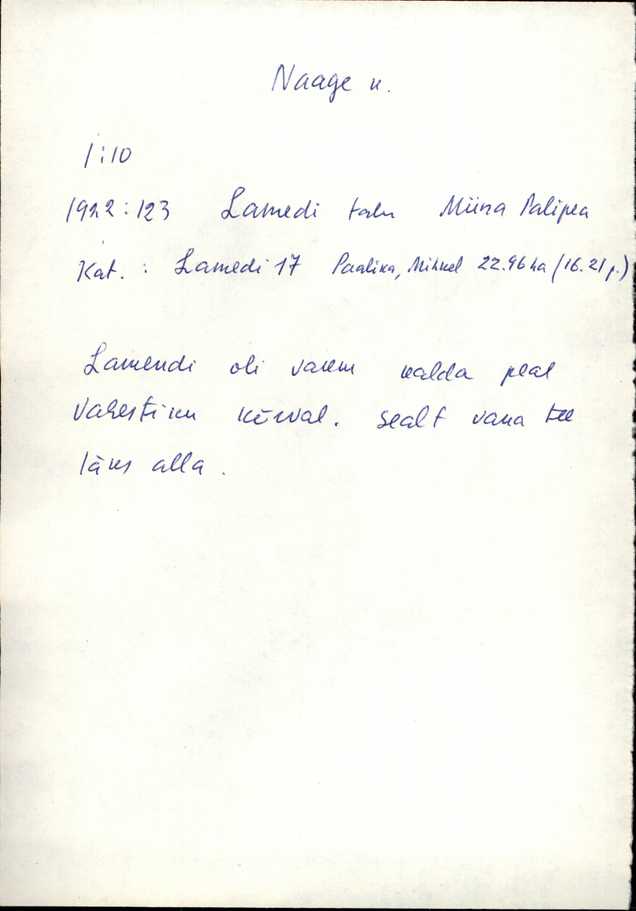 Naage k.
1:10
1922:123 Lamedi talu Miina Palipea
Kat. : Lamedi 17 Paalika, Mihkel 22.96 ha (16.21 p.)
Lamendi oli varem kalda peal
Vahestiku kõrval. Sealt vana tee
läks alla.